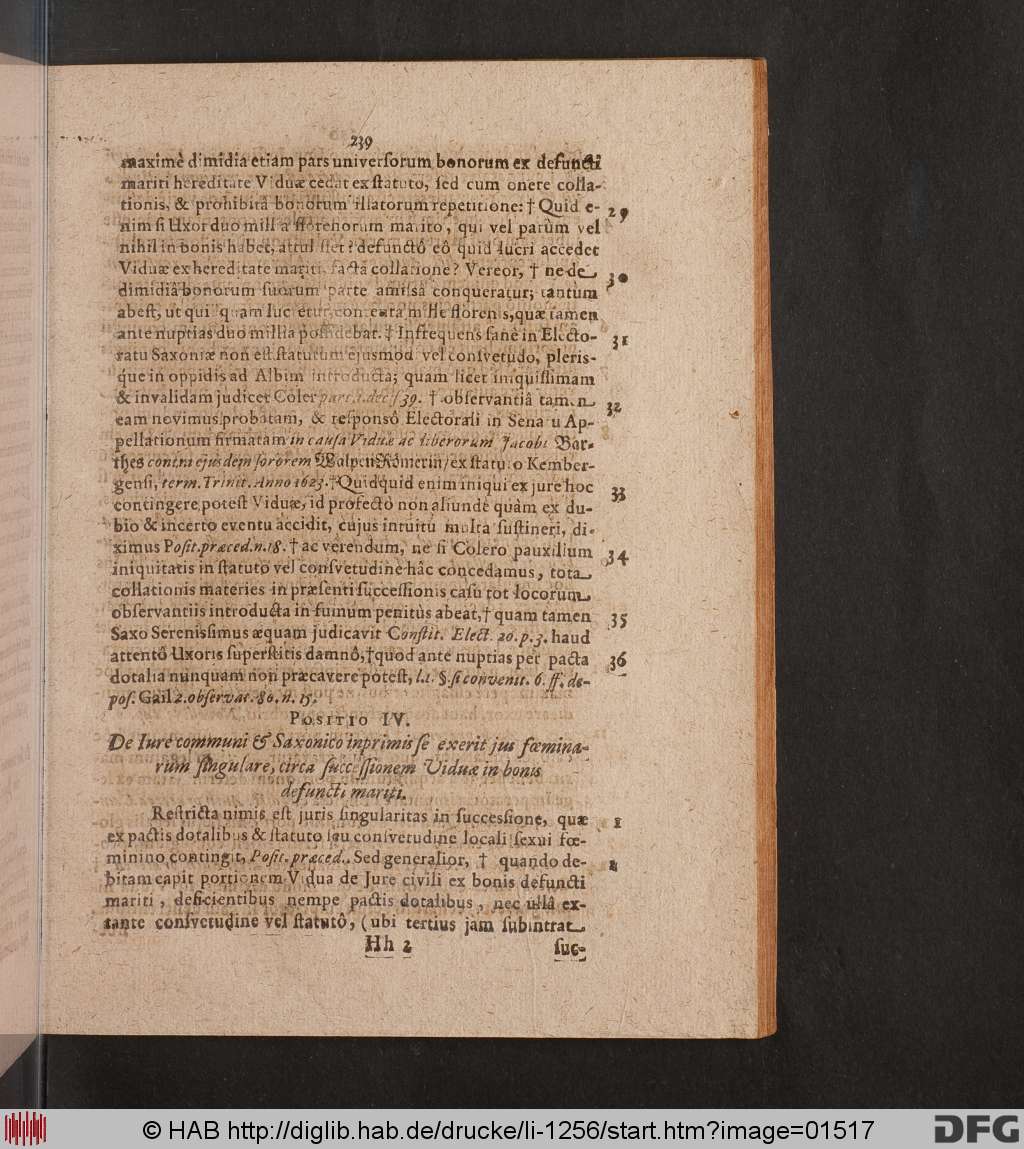 239
maximè dimidia etiam pars universorum bonorum ex defuncti
mariti hereditate Viduæ cedat ex statuto, sed cum onere colla-
tionis, & prohibitâ bonorum illatorum repetitione: † Quid e- 29
nim si Uxor duo millia florenorum marito, qui vel parùm vel
nihil in bonis habet, attulisset? defunctô eô quid lucri accedet
Viduæ ex hereditate mariti, factâ collatione? Vereor, † ne de 30
dimidiâ bonorum suorum parte amissâ conqueratur; tantùm
abest, ut quicquam lucretur, contenta mille florenis, quæ tamen
ante nuptias duo millia possidebat. † Infrequens sanè in Electo- 31
ratu Saxoniæ non est statutum ejusmodi vel consvetudo, pleris-
que in oppidis ad Albim introducta; quam licet iniquissimam
& invalidam judicet Coler part. 1. decis. 39. † observantiâ tamen 32
eam novimus probatam, & responsô Electorali in Senatu Ap-
pellationum firmatam in causa Viduæ ac liberorum Jacobi Bar-
thes contra ejusdem sororem Walpeti Römerin / ex statuto Kember-
gensi, term. Trinit. Anno 1623. † Quidquid enim iniqui ex jure hoc 33
contingere potest Viduæ, id profectò non aliunde quàm ex du-
bio & incerto eventu accidit, cujus intuitu multa sustineri, di-
ximus Posit. præced. n. 18. † ac verendum, ne si Colero pauxillum 34
iniquitatis in statuto vel consvetudine hâc concedamus, tota
collationis materies in præsenti successionis casu tot locorum
observantiis introducta in fumum penitùs abeat, † quam tamen 35
Saxo Serenissimus æquam judicavit Constit. Elect. 20. p. 3. haud
attentô Uxoris superstitis damnô, † quod ante nuptias per pacta 36
dotalia nunquam non præcavere potest, l. 1. §. si convenit. 6. ff. de-
pos. Gail 2. observat. 80. n. 15.
POSITIO IV.
De Iure communi & Saxonico inprimis se exerit jus fœmina-
rum singulare, circa successionem Viduæ in bonis
defuncti mariti.
Restricta nimis est juris singularitas in successione, quæ 1
ex pactis dotalibus & statuto seu consvetudine locali sexui fœ-
minino contingit, Posit. præced. Sed generalior, † quando de- 2
bitam capit portionem Vidua de Jure civili ex bonis defuncti
mariti, deficientibus nempe pactis dotalibus, nec ullâ ex-
tante consvetudine vel statutô, (ubi tertius jam subintrat
Hh 2 suc-
© HAB http://diglib.hab.de/drucke/li-1256/start.htm?image=01517
DFG